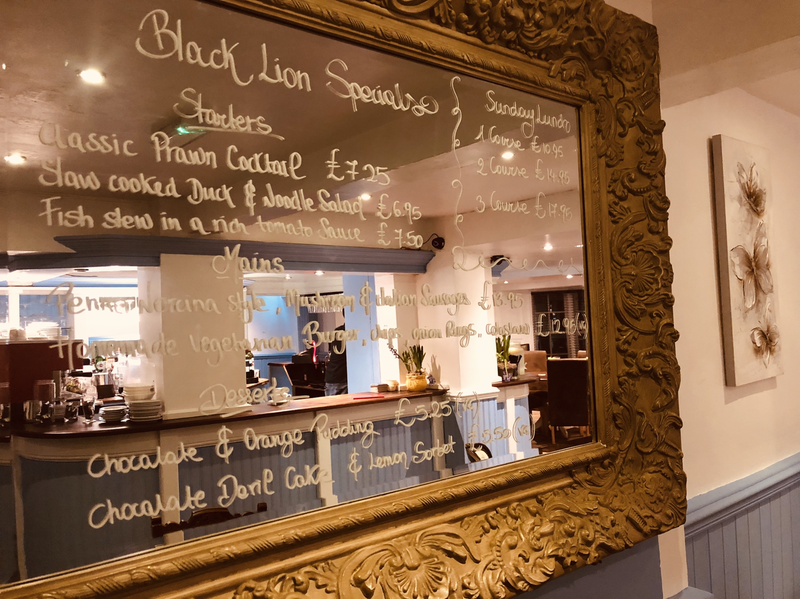 Black Lion Specials
Starters
Classic Prawn Cocktail £7.25
Slaw cooked Duck & Noodle Salad £6.95
Fish stew in a rich tomato Sauce £7.50
Mains
Penne Norcina style, Mushroom & Italian Sausages £13.95
Homemade Vegetarian Burger, chips, onion Rings, coleslaw £12.95
Desserts
Chocolate & Orange Pudding £5.25
Chocolate Devil Cake & Lemon Sorbet £5.50
Sunday Lunch
1 Course £10.95
2 Course £14.95
3 Course £17.95